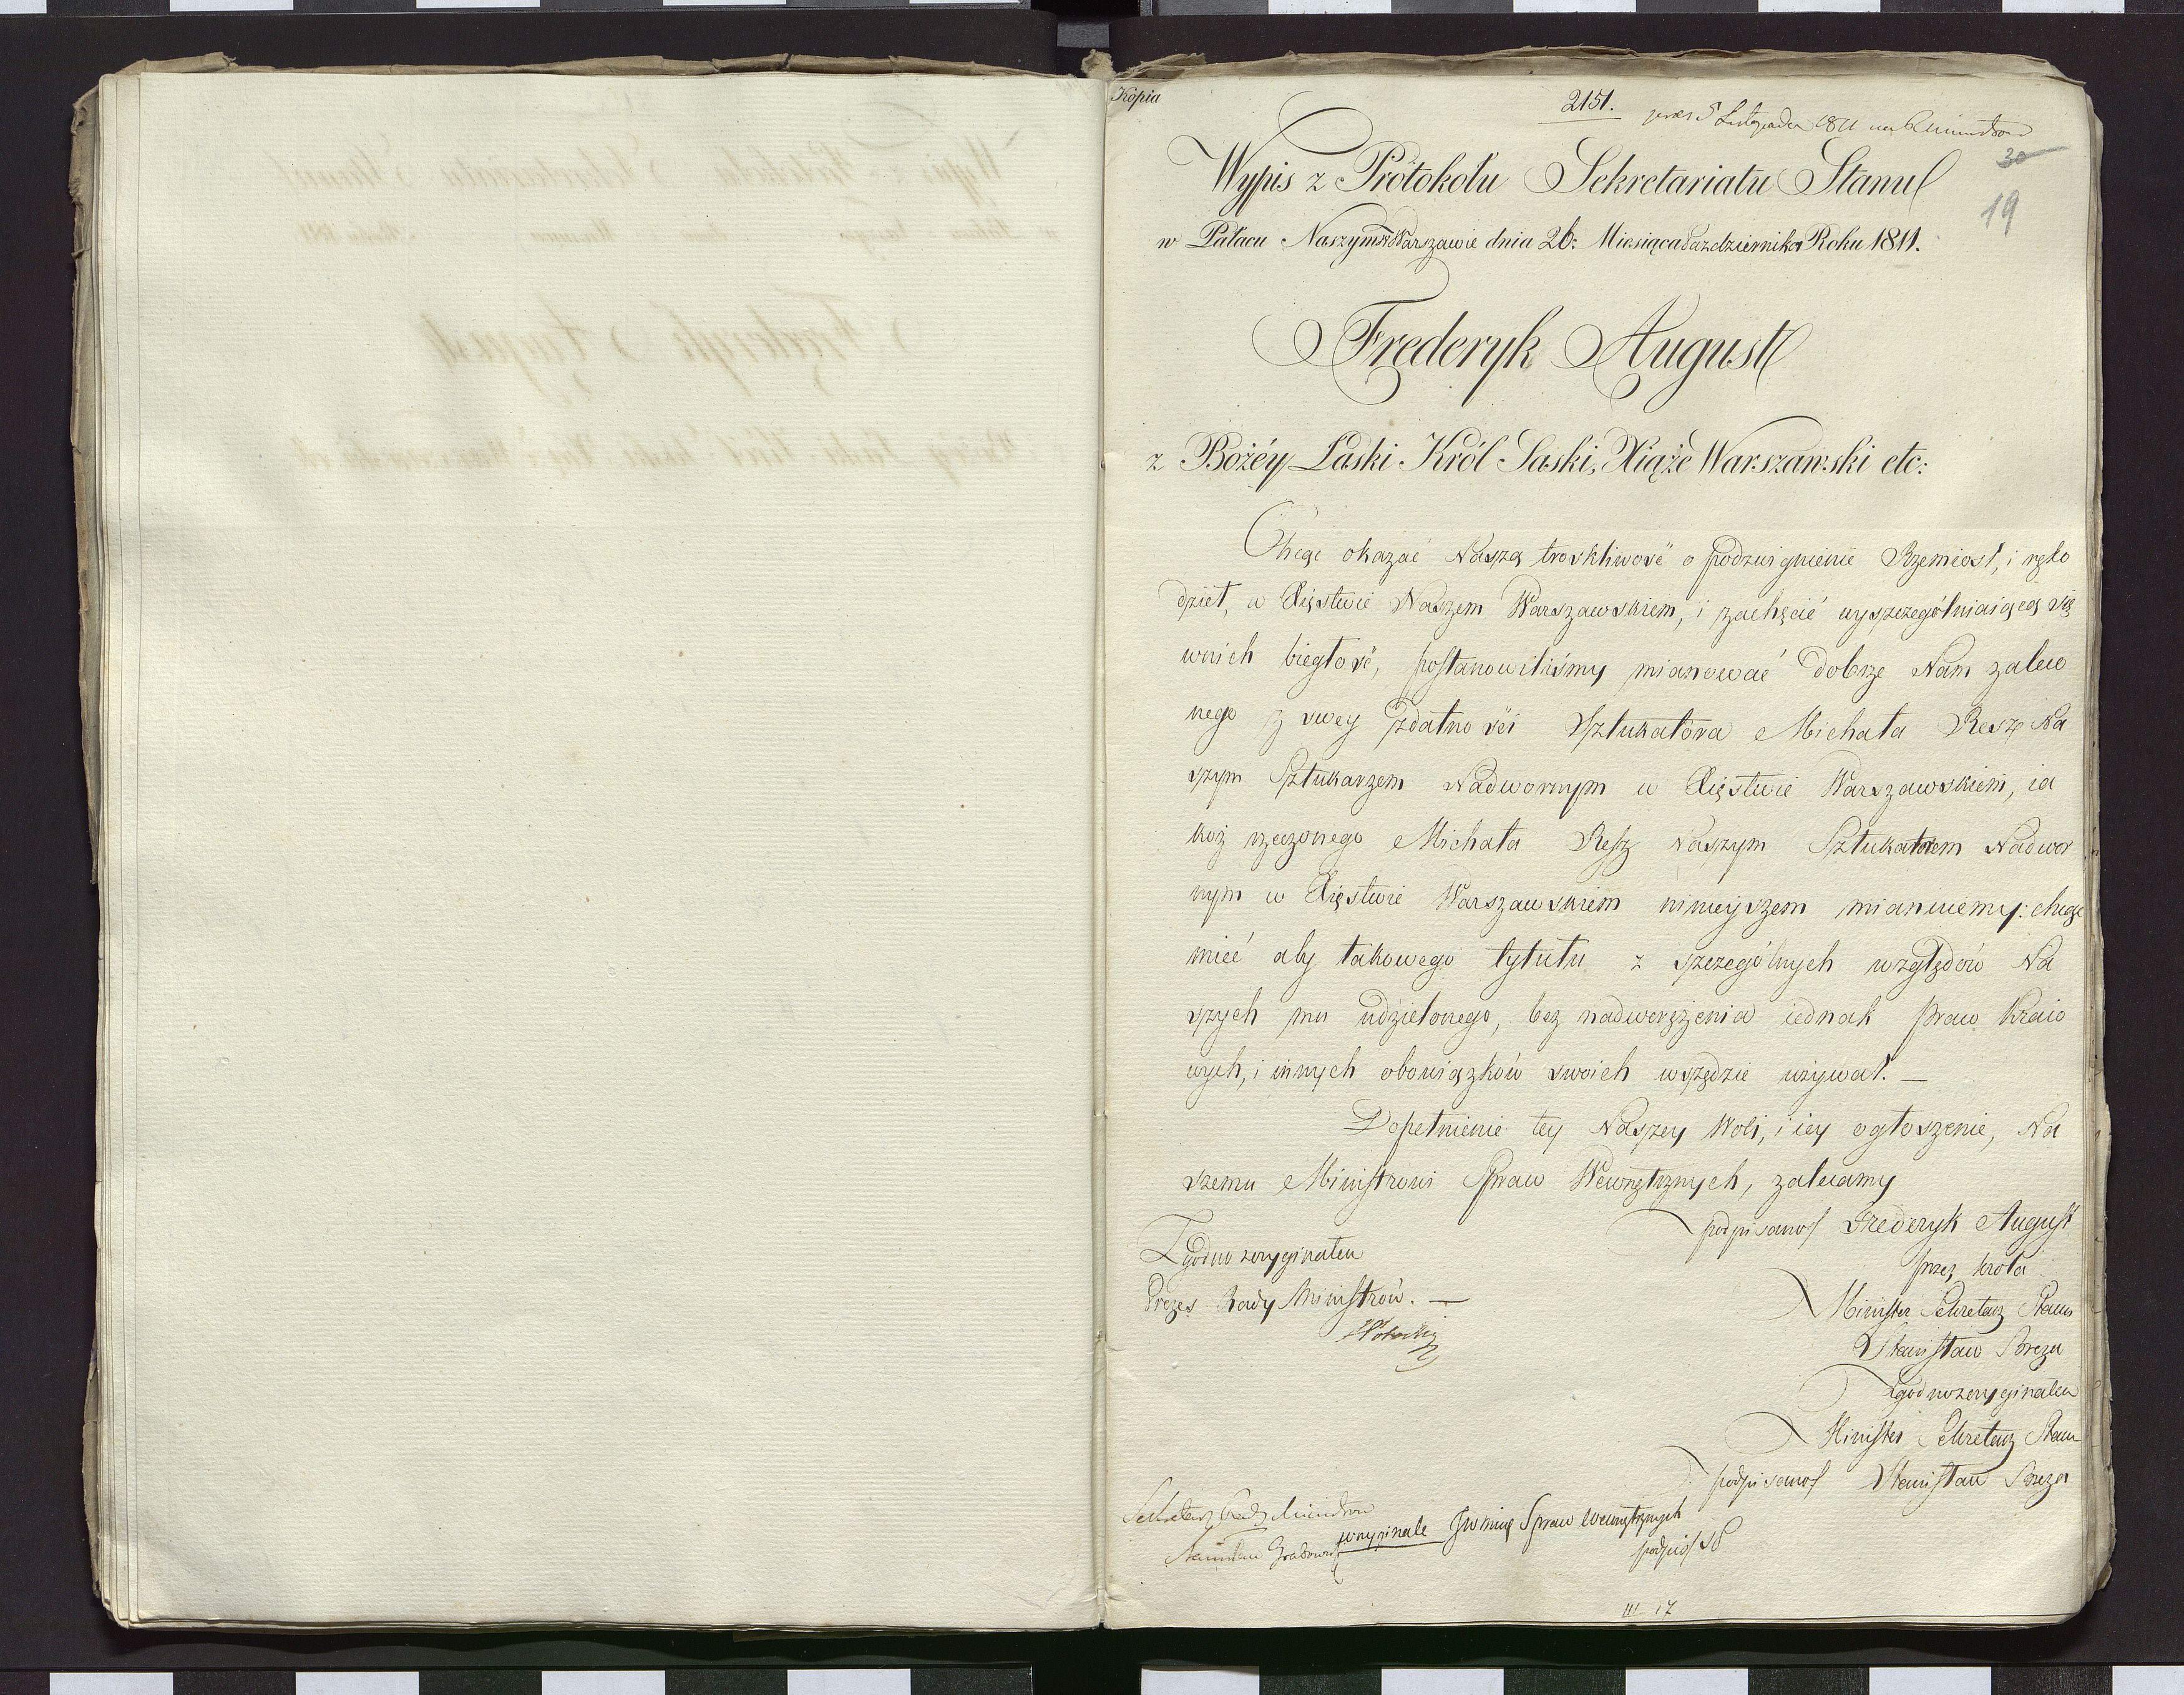 Kopia
2151.
5 Listopada 1811
30
19
Wypis z Protokołu Sekretariatu Stanu
w Pałacu Naszym w Warszawie dnia 26: Miesiąca Października Roku 1811.
Frederyk August
z Bożéy Łaski Król Saski, Xiąże Warszawski etc:
Chcąc okazać Naszą troskliwość o podzwignienie Rzemiosł, i ręko
dzieł, w Xięstwie Naszem Warszawskiem, i zachęcić wyszczególniaiącą się
wnich biegłość, postanowiliśmy mianować dobrze Nam zaleco
nego z swey zdatności Sztukatora Michała Resz Na
szym Sztukarzem Nadwornym w Xięstwie Warszawskiem, ia
koż rzeczonego Michała Resz Naszym Sztukatorem Nadwor
nym w Xięstwie Warszawskiem ninieyszem mianuiemy: chcąc
mieć aby takowego tytułu z szczególnych względów Na
szych mu udzielonego, bez nadwerężenia iednak praw kraio
wych, i innych obowiązków swoich wszędzie używał. —
Dopełnienie tey Naszey Woli, i iey ogłoszenie, Na
szemu Ministrowi Spraw Wewnętrznych, zalecamy
podpisano/ Frederyk August
przez króla
Minister Sekretarz Stanu
Stanisław Breza
Zgodno z oryginałem
Minister Sekretarz Stanu
podpisano/ Stanisław Breza
Zgodno z oryginałem
Prezes Rady Ministrów. —
Sekretarz Rady Ministrów
Stanisław Grabowski
w oryginale Spraw Wewnętrznych
III 17